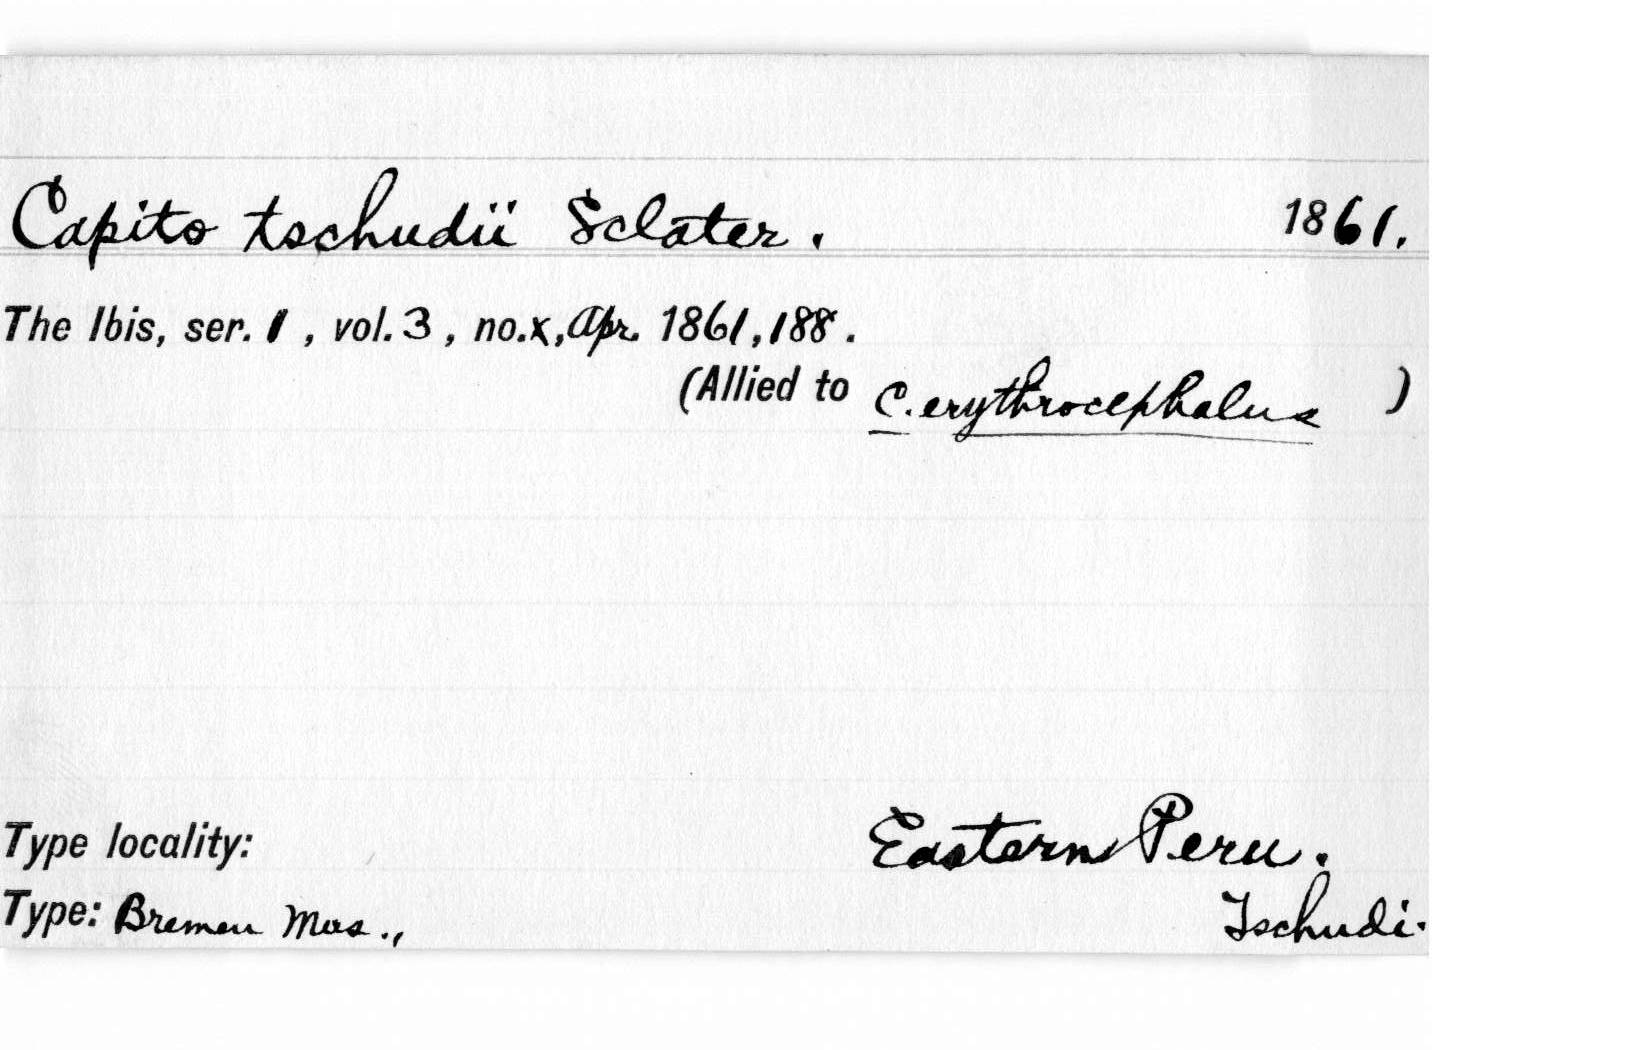 Capito tschudii Sclater. 1861.
The Ibis, ser. 1, vol. 3, no. x, Apr. 1861, 188.
(Allied to C. erythrocephalus )
Type locality: Eastern Peru.
Type: Bremen Mus., Tschudi.